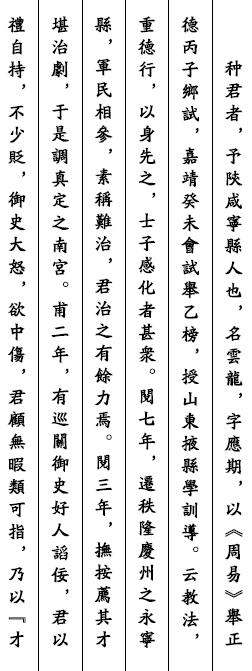 种君者，予陝咸寧縣人也，名雲龍，字應期，以《周易》舉正
德丙子鄉試，嘉靖癸未會試舉乙榜，授山東掖縣學訓導。云教法，
重德行，以身先之，士子感化者甚衆。閱七年，遷秩隆慶州之永寧
縣，軍民相參，素稱難治，君治之有餘力焉。閱三年，撫按薦其才
堪治劇，于是調真定之南宮。甫二年，有巡關御史好人諂佞，君以
禮自持，不少貶，御史大怒，欲中傷，君顧無暇類可指，乃以『才